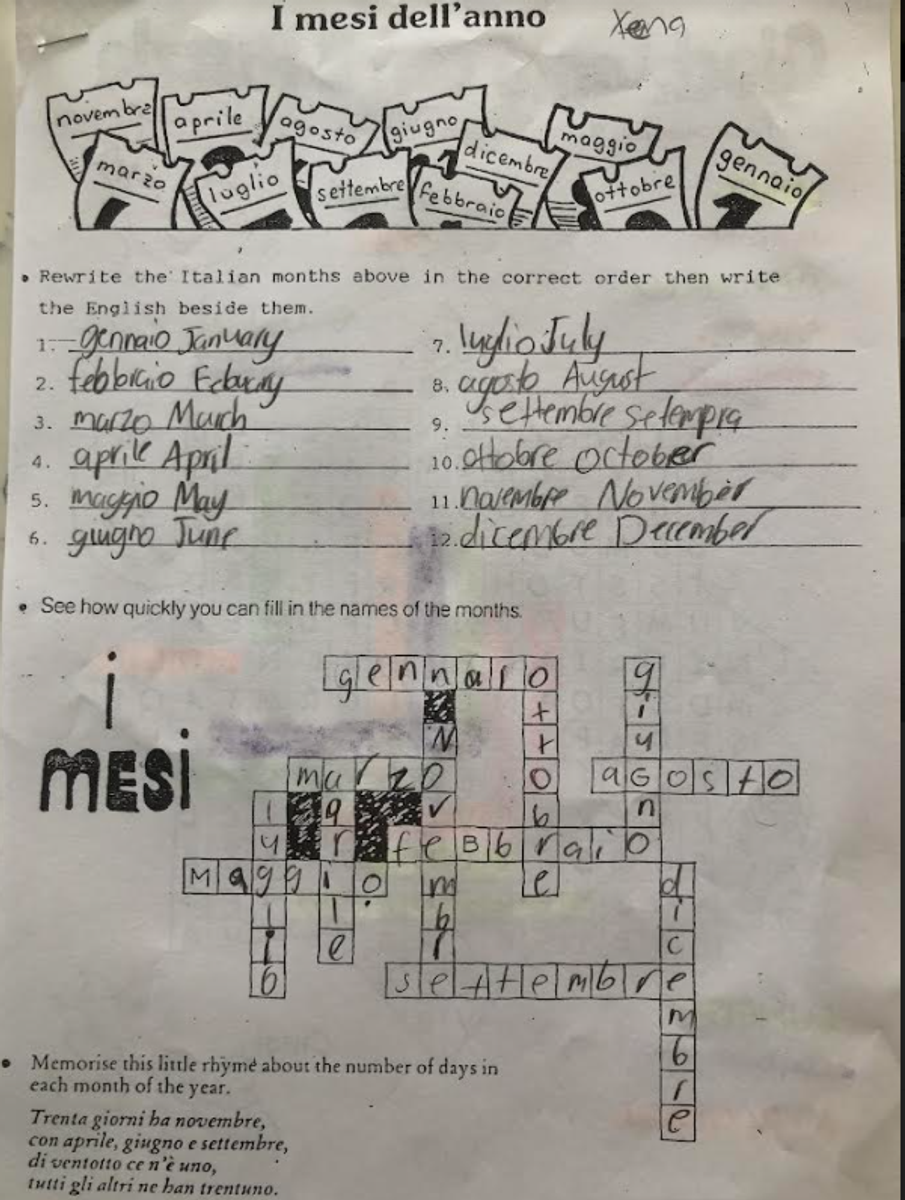 I mesi dell'anno Xena
novembre aprile agosto giugno dicembre maggio gennaio
marzo luglio settembre febbraio ottobre
• Rewrite the Italian months above in the correct order then write
the English beside them.
1. gennaio January
2. febbraio Februry
3. marzo March
4. aprile April
5. maggio May
6. giugno June
7. luglio July
8. agosto August
9. settembre setempra
10. ottobre october
11. novembre November
12. dicembre December
• See how quickly you can fill in the names of the months.
i
MESI
gennaio
ottobre
giugno
Novembre
marzo
agosto
luglio
aprile
feBbraio
Maggio
dicembre
settembre
• Memorise this little rhyme about the number of days in
each month of the year.
Trenta giorni ha novembre,
con aprile, giugno e settembre,
di ventotto ce n'è uno,
tutti gli altri ne han trentuno.